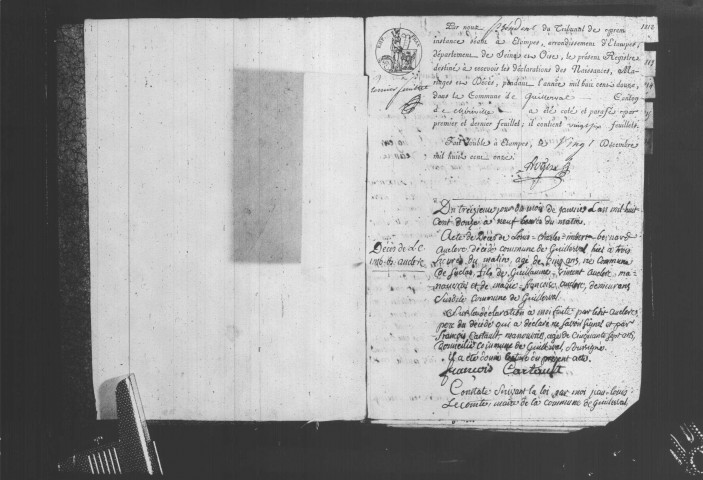 1812
Par nous Président du Tribunal de première
instance séant à Etampes, arrondissement d'Etampes,
département de Seine et Oise, le présent Registre
destiné à recevoir les déclarations des Naissances, Ma-
riages et Décès, pendant l'année mil huit cent douze,
dans la Commune de Guillerval Canton
de Méréville a été coté et parafé par
premier et dernier feuillet; il contient vingt six feuillets.
Fait double à Etampes, le Vingt Décembre
mil huit cent onze.
premier feuillet
Du treizieme jour du mois de janvier L'an mil huit
Cent douze à neuf heures du matin.
Décès de L. C.
auclerc
Acte de Décès de Louis = charles = imbert = bernard
auclerc décédé commune de Guillerval hier à trois
heures du matin, agé de Cinq ans, né Commune
de fils de Guillaume = vincent auclerc, ma-
nouvrier et de marie = francoise auclerc, demeurans
Susdite Commune de Guillerval.
Sur la declaration à moi faite par ledit auclerc,
pere du décédé qui a declaré ne savoir signer et par
françois Cartault manouvrier, agé de Cinquante sept ans,
Domicilié Commune de Guillerval, Soussigné.
Il a été donné lecture du présent acte.
francois Cartault
Constaté Suivant la loi par moi jean = louis
Lecomte, maire de la commune de Guillerval